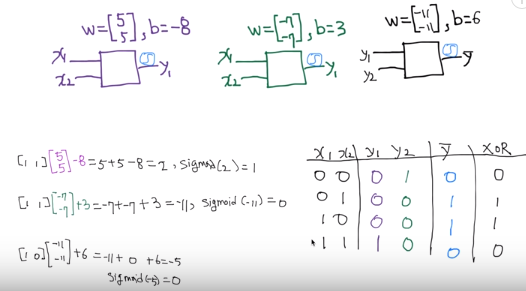 w=[5 5], b=-8
w=[-7 -7], b=3
w=[-11 -11], b=6
x1 x2 S y1
x1 x2 S y1
y1 y2 S ȳ
[1 1][5 5]-8=5+5-8=2, sigmoid(2)=1
[1 1][-7 -7]+3=-7+-7+3=-11, sigmoid(-11)=0
[1 0][-11 -11]+6=-11+0+6=-5
sigmoid(-5)=0
x1 x2 y1 y2 ȳ XOR
0 0 0 1 0 0
0 1 0 0 1 1
1 0 0 0 1 1
1 1 1 0 0 0